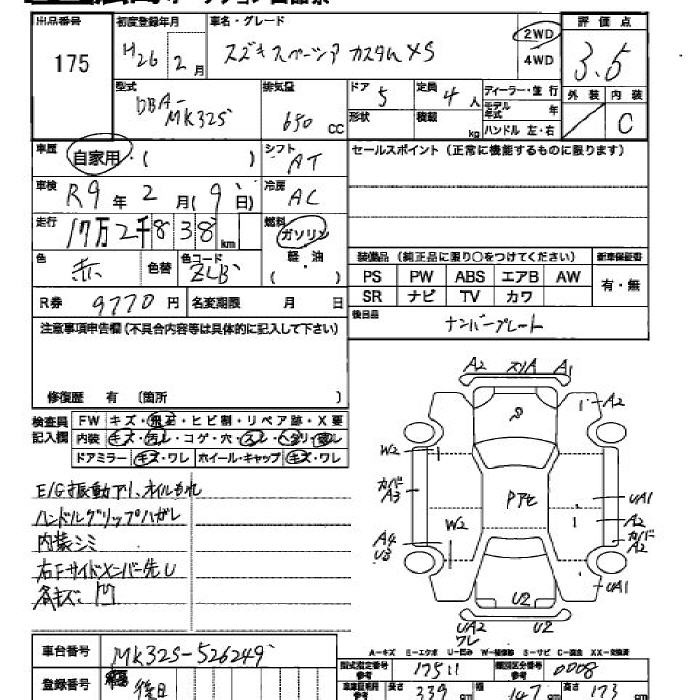 出品番号 初度登録年月 車名・グレード 評価点
175 H26 2月 スズキスペーシア カスタムXS 2WD 4WD 3.5
外装 内装 C
型式 DBA-MK32S 排気量 650 CC ドア 5 定員 4人 ディーラー・並行
形状 積載 kg モデル年式 年 ハンドル 左・右
車歴 自家用・( ) シフト AT セールスポイント(正常に機能するものに限ります)
車検 R9年2月(9日) 冷房 AC
走行 17万2千838km 燃料 ガソリン 軽・油 ( )
色 赤 色替 色コード ZLB
装備品(純正品に限り○をつけてください) 新車保証書
PS PW ABS エアB AW 有・無
SR ナビ TV カワ
R券 9770円 名変期限 月 日 後日品 ナンバープレート
注意事項申告欄(不具合内容等は具体的に記入して下さい)
修復歴 有 (箇所 )
検査員記入欄 FW キズ・飛石・ヒビ割・リペア跡・X要
内装 キズ・汚レ・コゲ・穴・スレ・
ドアミラー キズ・ワレ ホイール・キャップ キズ・ワレ
E/G振動アリ、オイルもれ
ハンドルグリップハガレ
内装シミ
右Fサイドメンバー先U
各キズ・凹
A2 スリA A1
A2
W2
カバA3
Pアセ
UA1
A2
カバA2
W2
A4
U3
UA1
U2
UA2
ワレ
U2
A-キズ E-エクボ U-凹み W-補修跡 S-サビ C-腐食 XX-交換済
車台番号 MK32S-526249
型式指定番号参考 17511 類別区分番号参考 0008
登録番号 後日
長さ 339 cm 幅 147 cm 高さ 173 cm